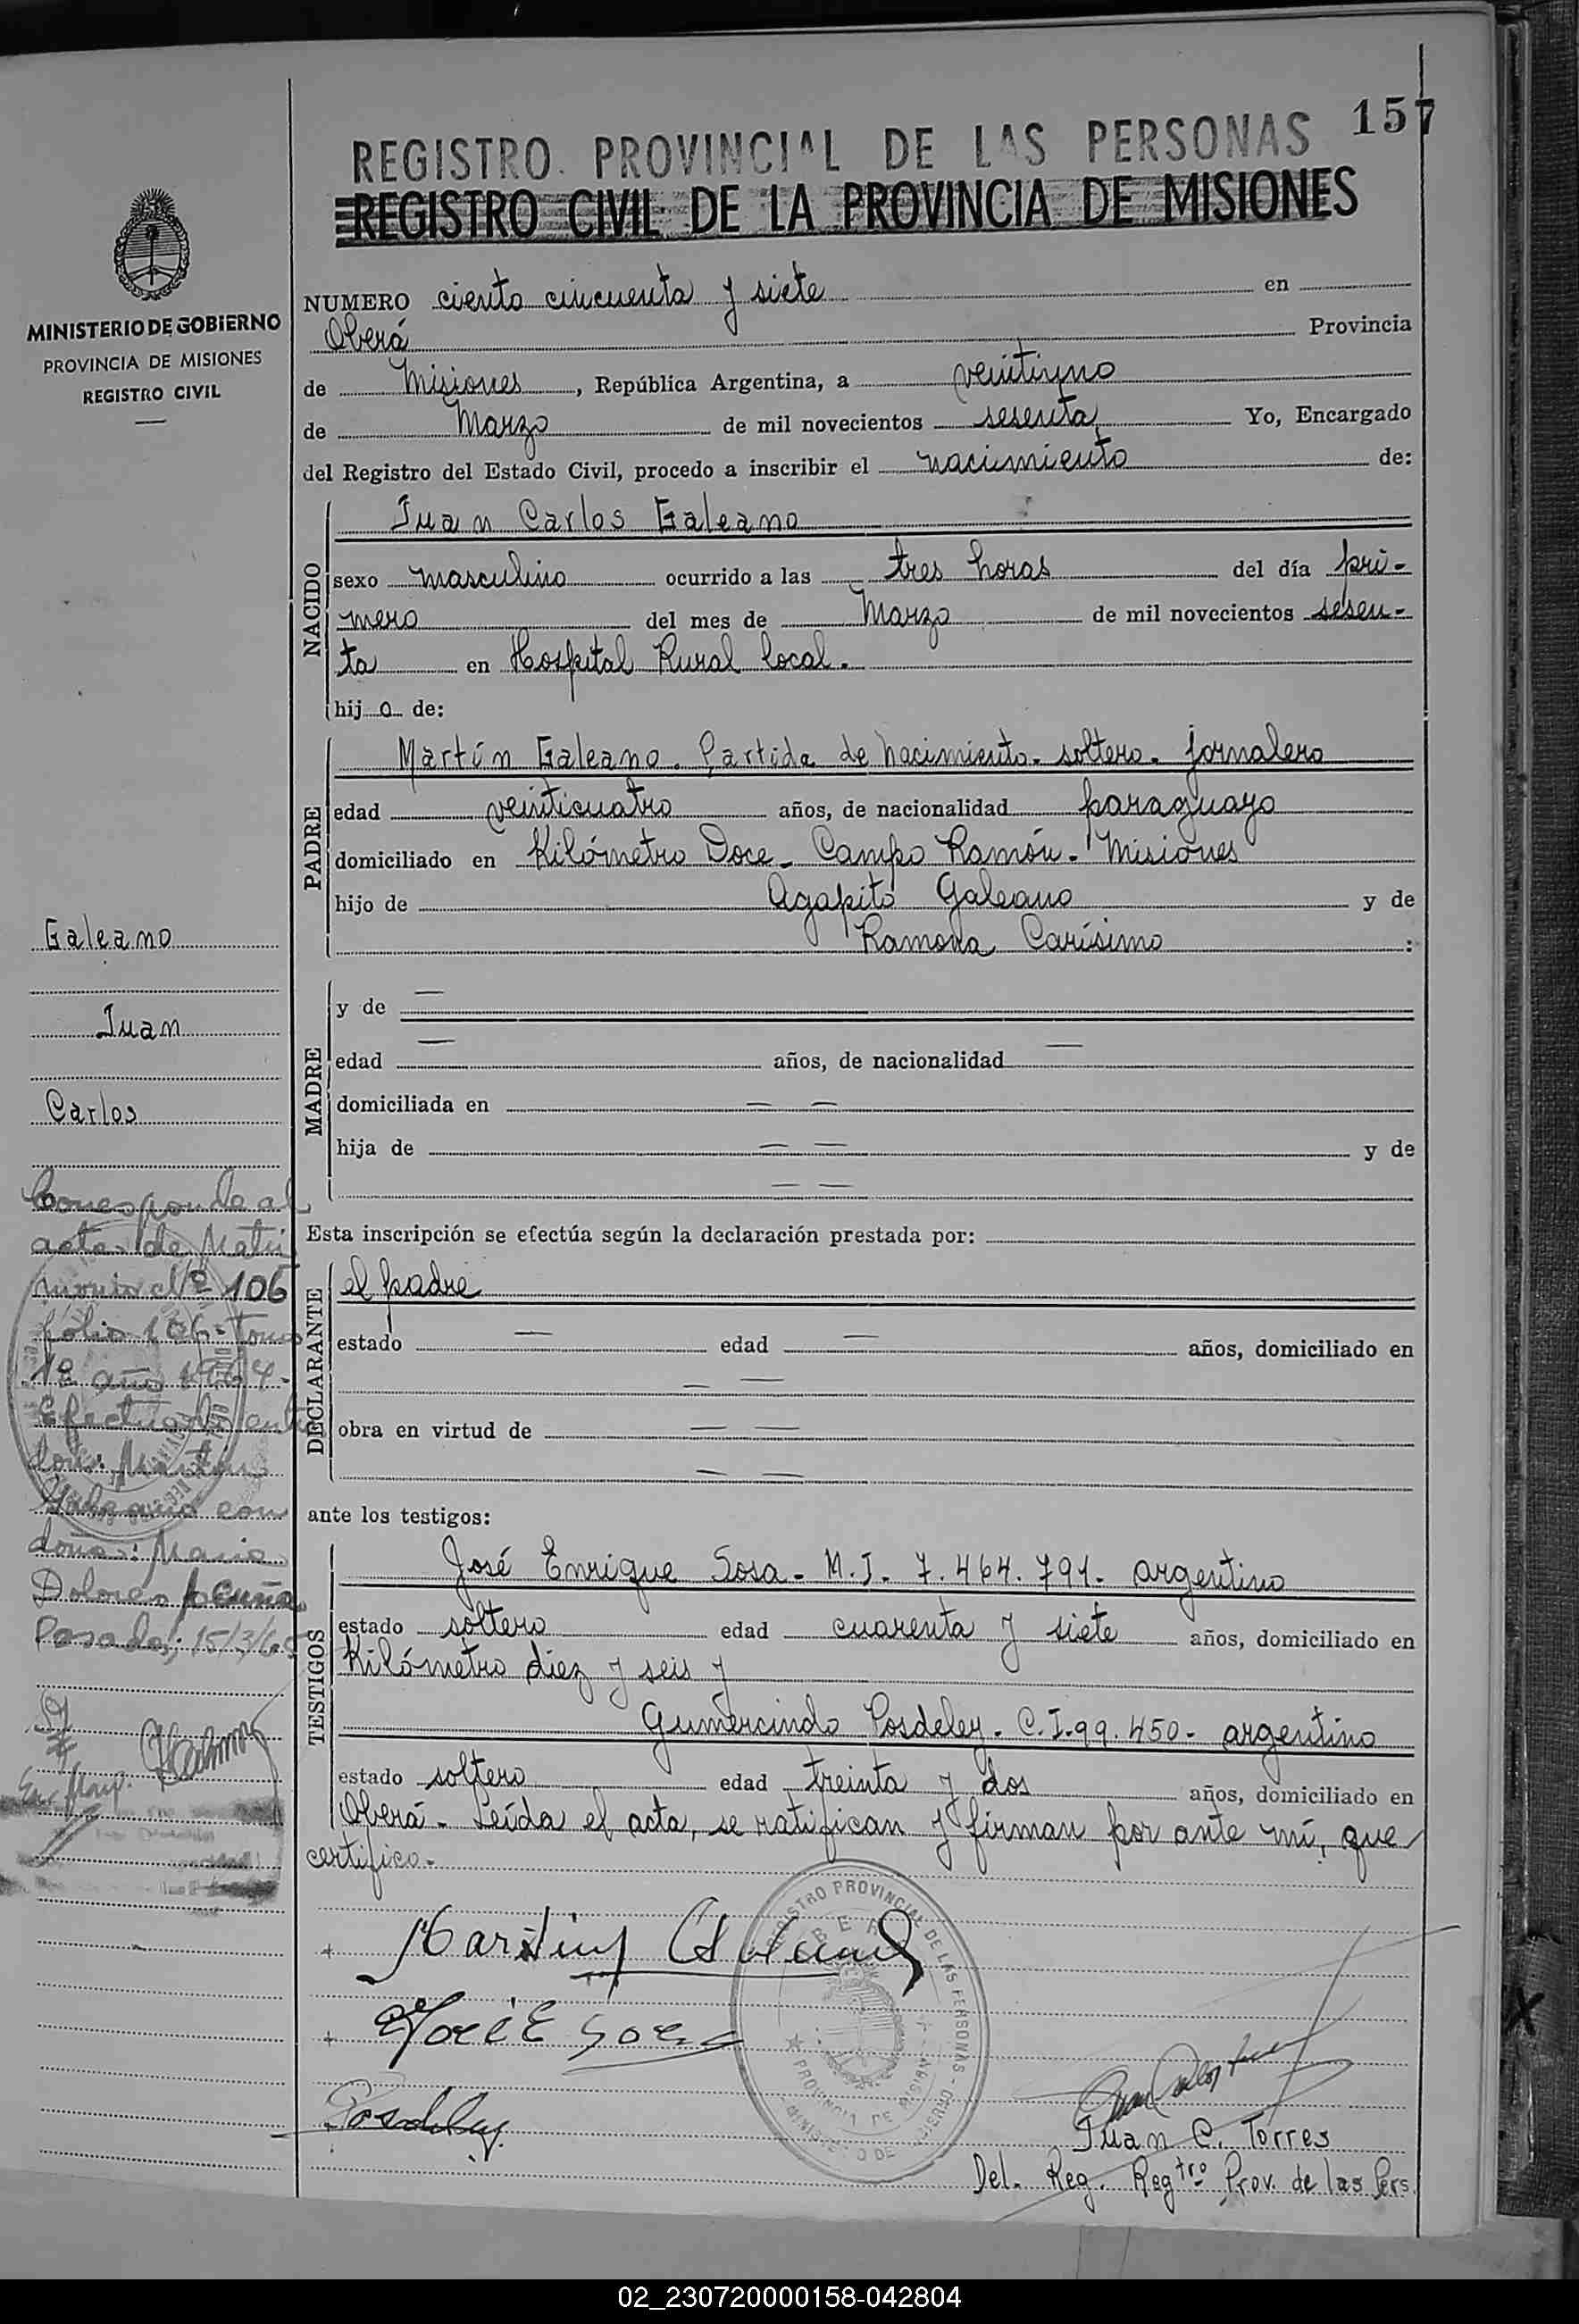 157
REGISTRO PROVINCIAL DE LAS PERSONAS
REGISTRO CIVIL DE LA PROVINCIA DE MISIONES
MINISTERIO DE GOBIERNO
PROVINCIA DE MISIONES
REGISTRO CIVIL
NUMERO ciento cincuenta y siete en
Oberá Provincia
de Misiones, República Argentina, a veintiuno
de Marzo de mil novecientos sesenta Yo, Encargado
del Registro del Estado Civil, procedo a inscribir el nacimiento de:
NACIDO
Juan Carlos Galeano
sexo masculino ocurrido a las tres horas del día pri-
mero del mes de Marzo de mil novecientos sesen-
ta en Hospital Rural local.
hijo de:
PADRE
Martín Galeano. Partida de nacimiento- soltero- jornalero
edad veinticuatro años, de nacionalidad paraguayo
domiciliado en Kilómetro Doce- Campo Ramón- Misiones
hijo de Agapito Galeano y de
Ramona Carísimo :
MADRE
y de —
edad — años, de nacionalidad —
domiciliada en — —
hija de — — y de
— —
Esta inscripción se efectúa según la declaración prestada por:
DECLARANTE
el padre
estado — edad — años, domiciliado en
— —
obra en virtud de — —
— —
ante los testigos:
TESTIGOS
José Enrique Sosa- M.I- 7.464.791- argentino
estado soltero edad cuarenta y siete años, domiciliado en
Kilómetro diez y seis y
Gumercindo Posdeley- C.I-99.450- argentino
estado soltero edad treinta y dos años, domiciliado en
Oberá- Leída el acta, se ratifican y firman por ante mí, que
certifico-
Galeano
Juan
Carlos
Corresponde al
acta de Matri
monio Nº 106
folio 106- Tomo
1º año 1964-
Efectuado entre
don: Martín
Galeano con
doña: Maria
Dolores Acuña
Posadas; 15/3/65
Martin Galeano
José E Sosa
Posdeley
REGISTRO PROVINCIAL DE LAS PERSONAS
PROVINCIA DE MISIONES
Juan C. Torres
Del. Reg. Regtro Prov. de las Pers.
02_230720000158-042804